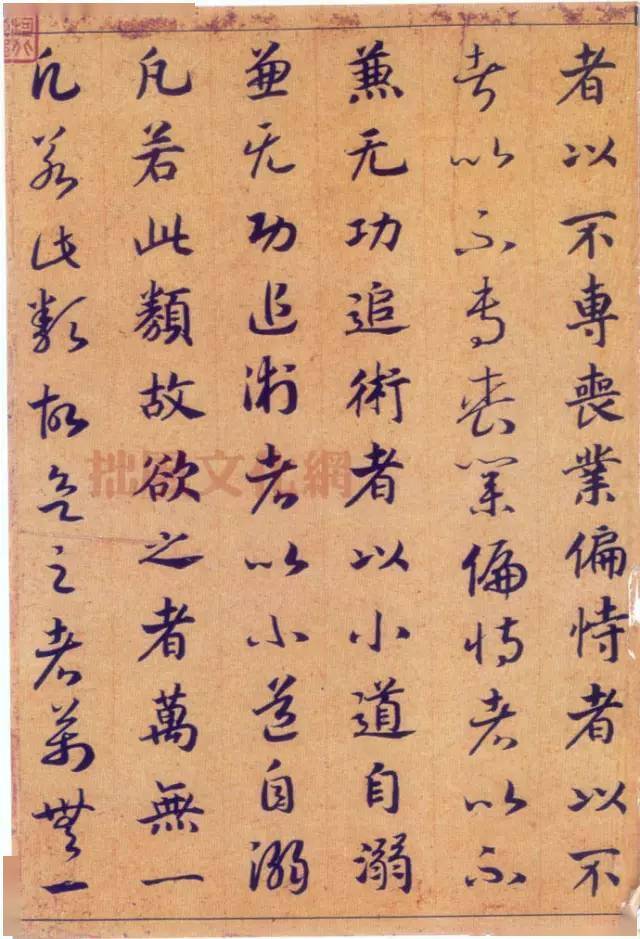 者以不專喪業偏恃者以不
者以不專喪業偏恃者以不
兼无功追術者以小道自溺
兼无功追術者以小道自溺
凡若此類故欲之者萬無一
凡若此類故欲之者萬無一
文化網